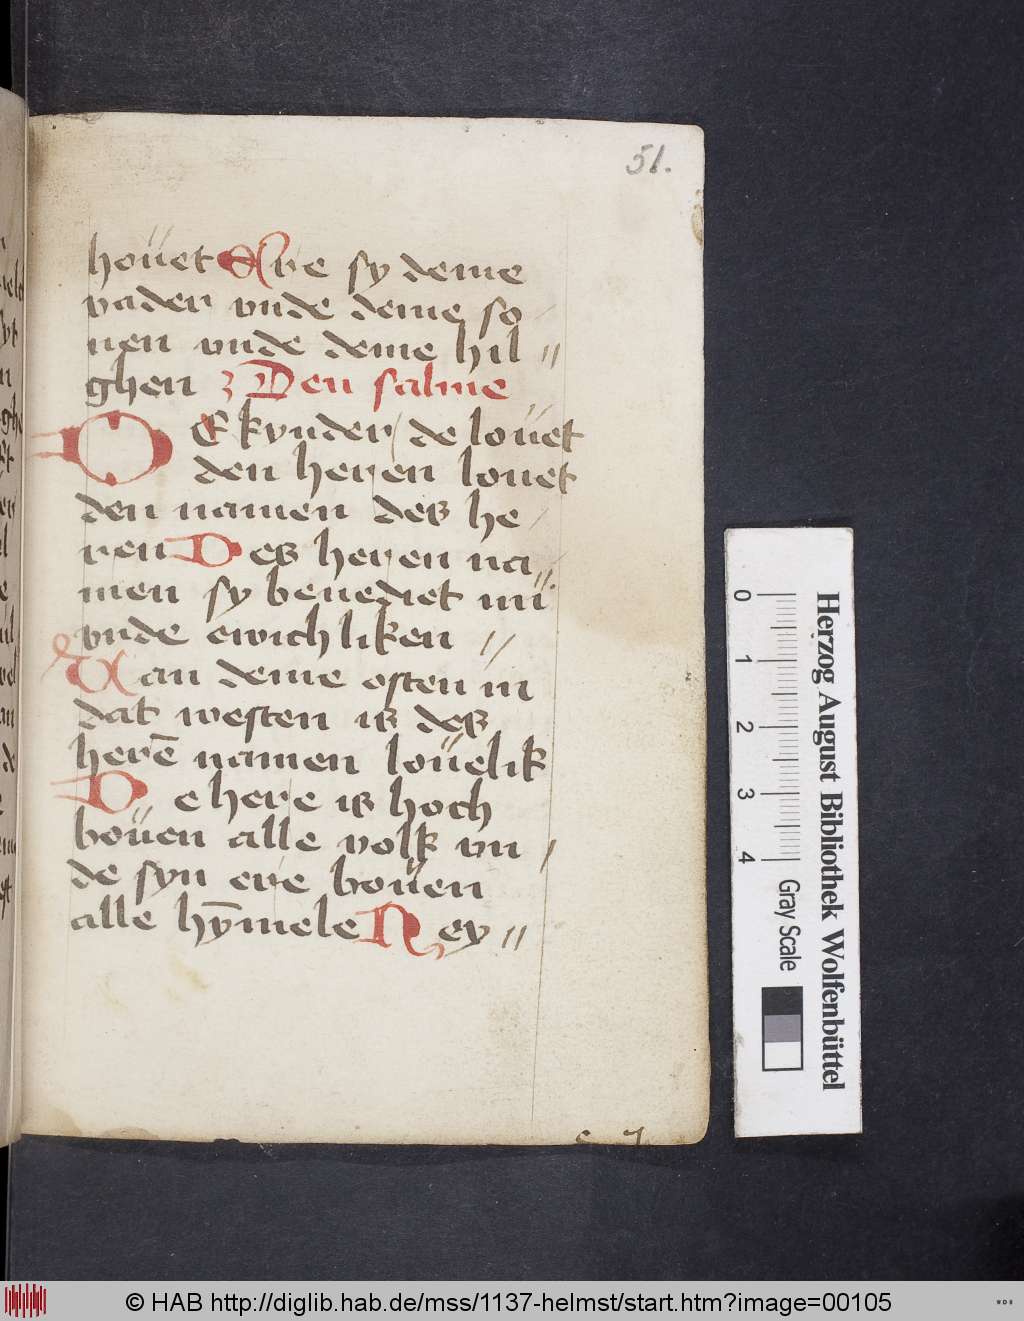 51.
hoüet Ere sy deme
vader vnde deme so
nen vnde deme hil //
ghen Den salme
OE kynder de loüet
den heren louet
den namen des he /
ren Des heren na
men sy benediet nü
vnde ewichliken //
Uan deme osten in
dat westen is des
herē namen loüelik
De here is hoch
boüen alle volk vn /
de syn ere boüen
alle hȳmele Ney //
0 1 2 3 4
Gray Scale
Herzog August Bibliothek Wolfenbüttel
© HAB http://diglib.hab.de/mss/1137-helmst/start.htm?image=00105